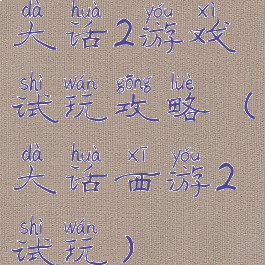 dà huà yóu xì
大话2游戏
shì wán gōng luè
试玩攻略(
dà huà xī yóu
大话西游2
shì wán
试玩)